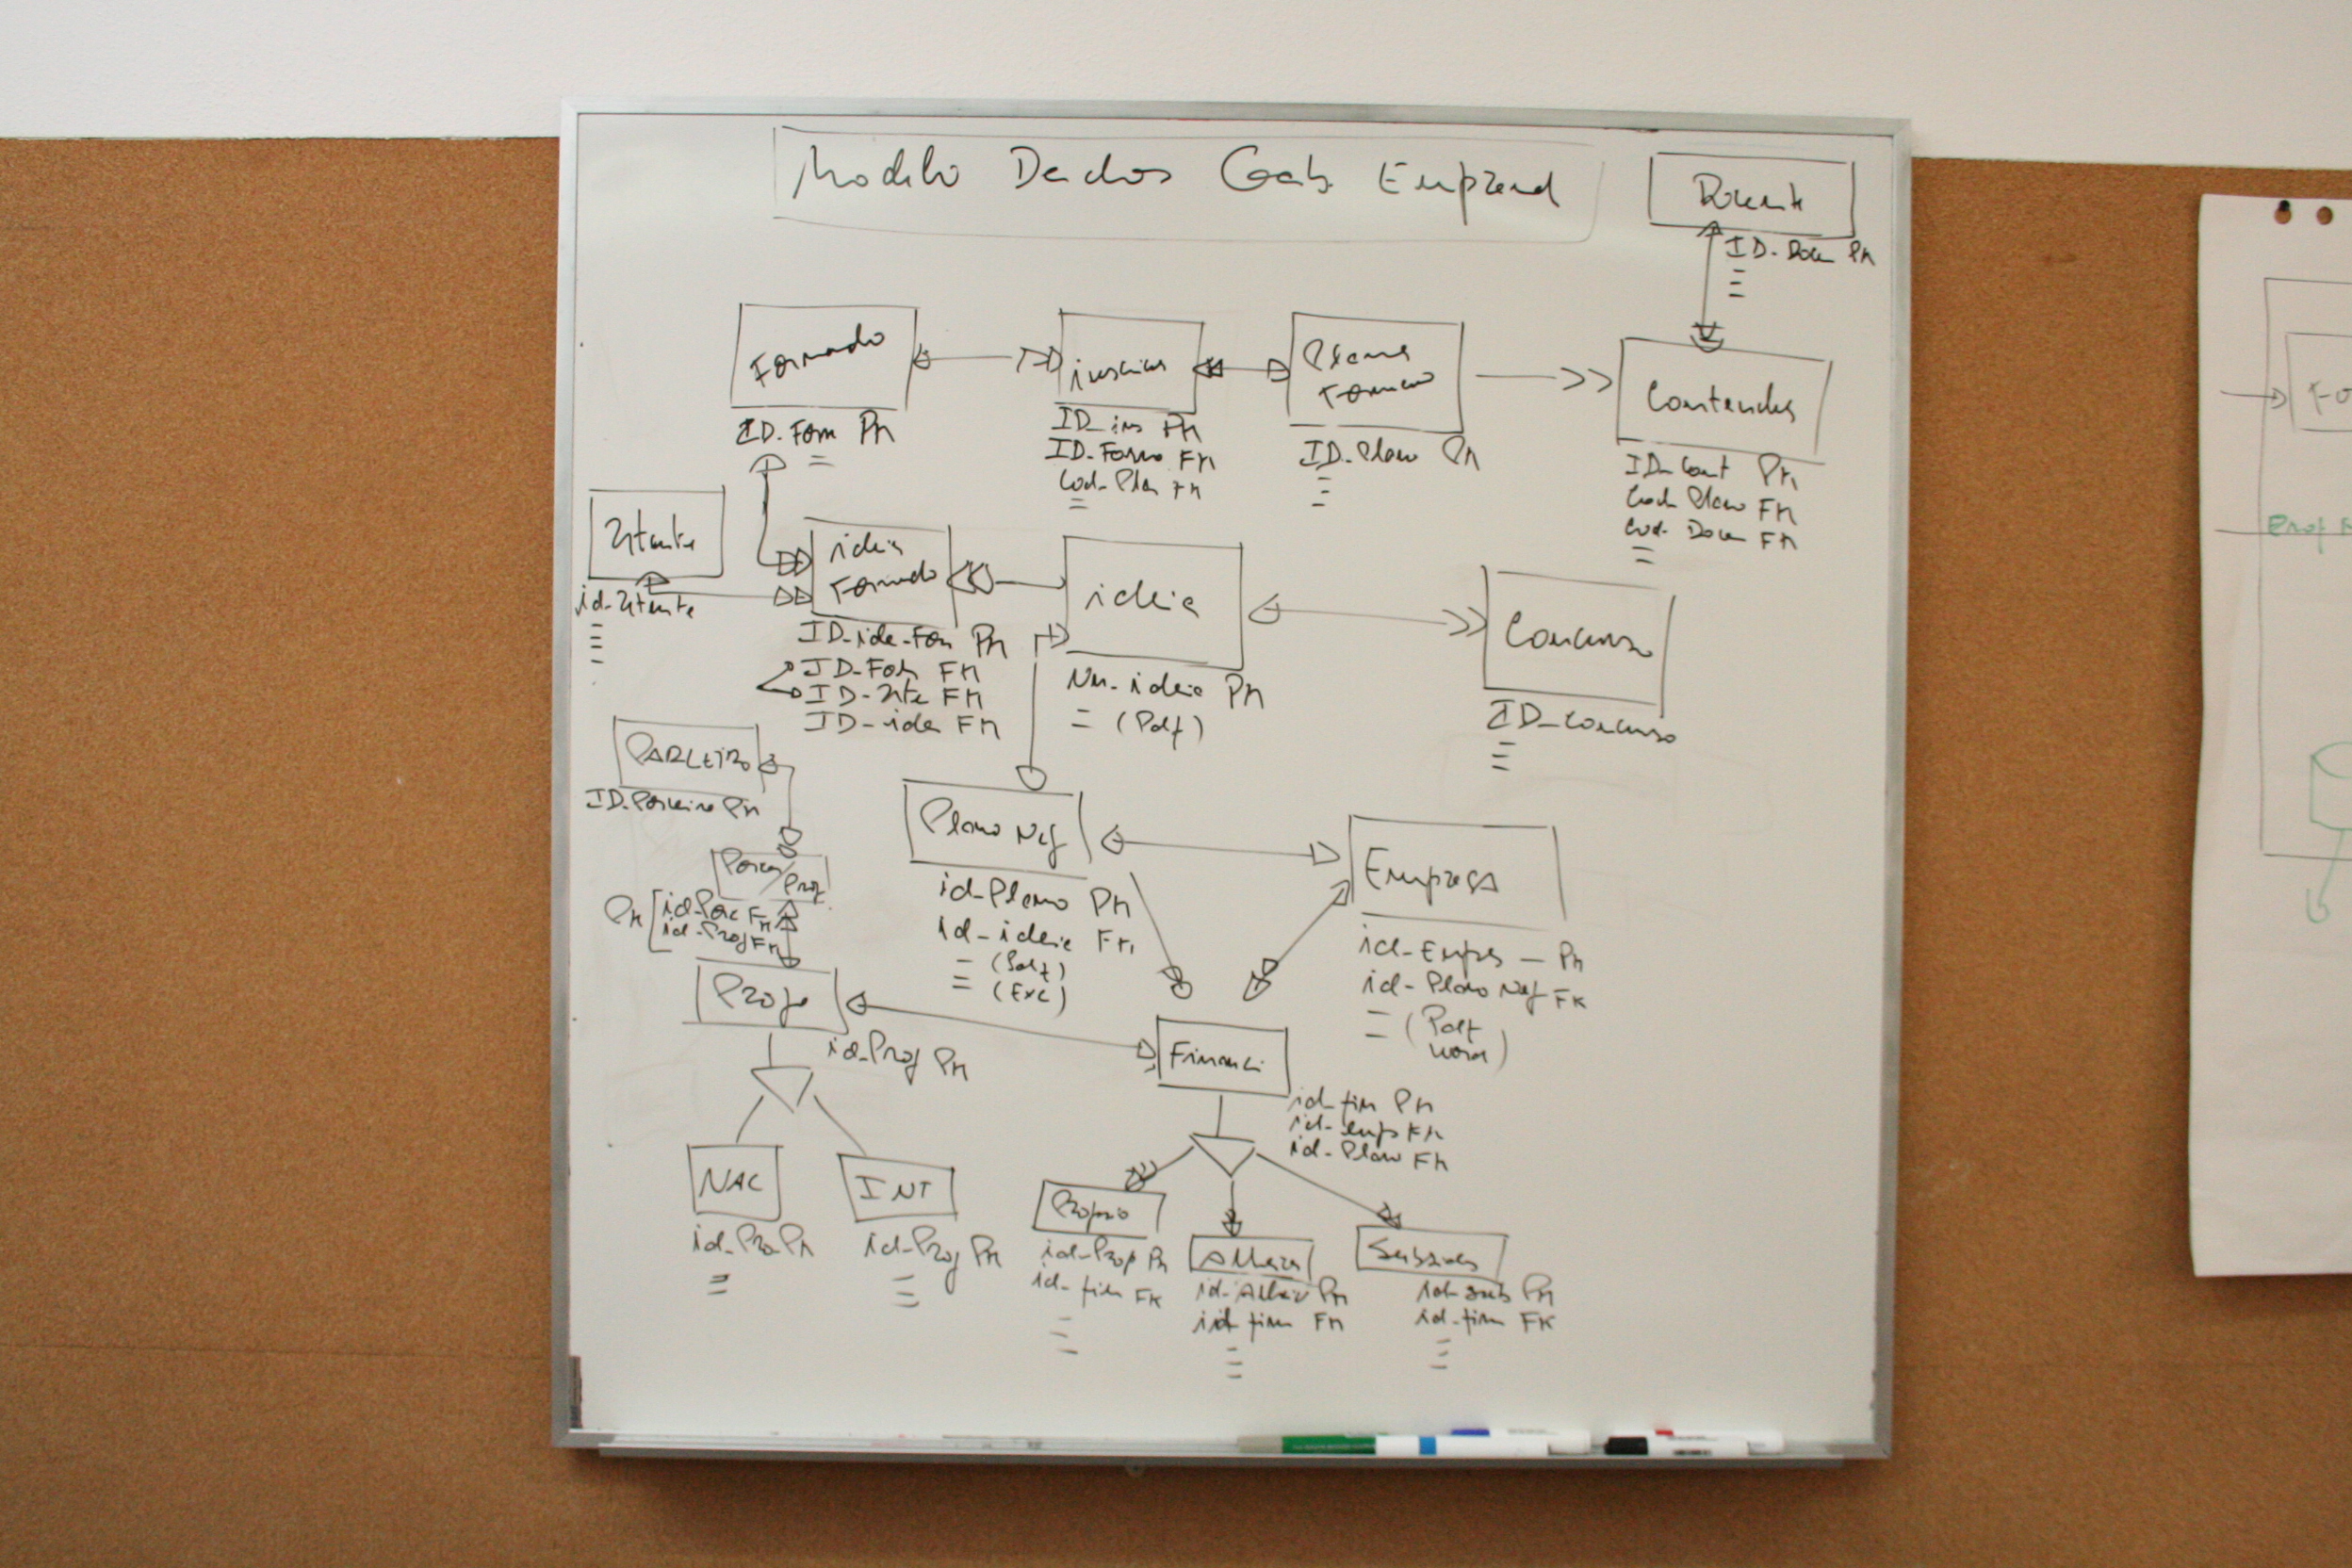 Modelo Dados Gab. Emprend
Docente
ID-Docn PK
Formado
ID-Form PK
inscrico
ID_ins PK
ID-Formo FK
Cod-Plan FK
Plano
Formaco
ID-Plano PK
Conteudos
ID-Cont PK
Cod-Plano FK
Cod-Docn FK
Utente
id-Utente
ideia
Formado
ID-ide-Fon PK
ID-Fon FK
ID-Ute FK
ID-ide FK
ideia
Nu-ideia PK
(Pdf)
Concurso
ID_concurso
PARCEIRO
ID-Parceiro PK
Parc/
Proj
PK
id-Parc FK
id-Proj FK
Plano Neg
id-Plano PK
id-ideia FK
(Pdf)
(Exc)
Empresa
id-Empres - PK
id-Plano Neg FK
(Pdf
Word)
Proje
id-Proj PK
Financi
id-fin PK
id-emp FK
id-Plano FK
NAC
id-Pro PK
INT
id-Proj PK
Proprio
id-Prop PK
id-fin FK
Alheio
id-Alhei PK
id-fin FK
Subsidos
id-sub PK
id-fin FK
Fo
Proj